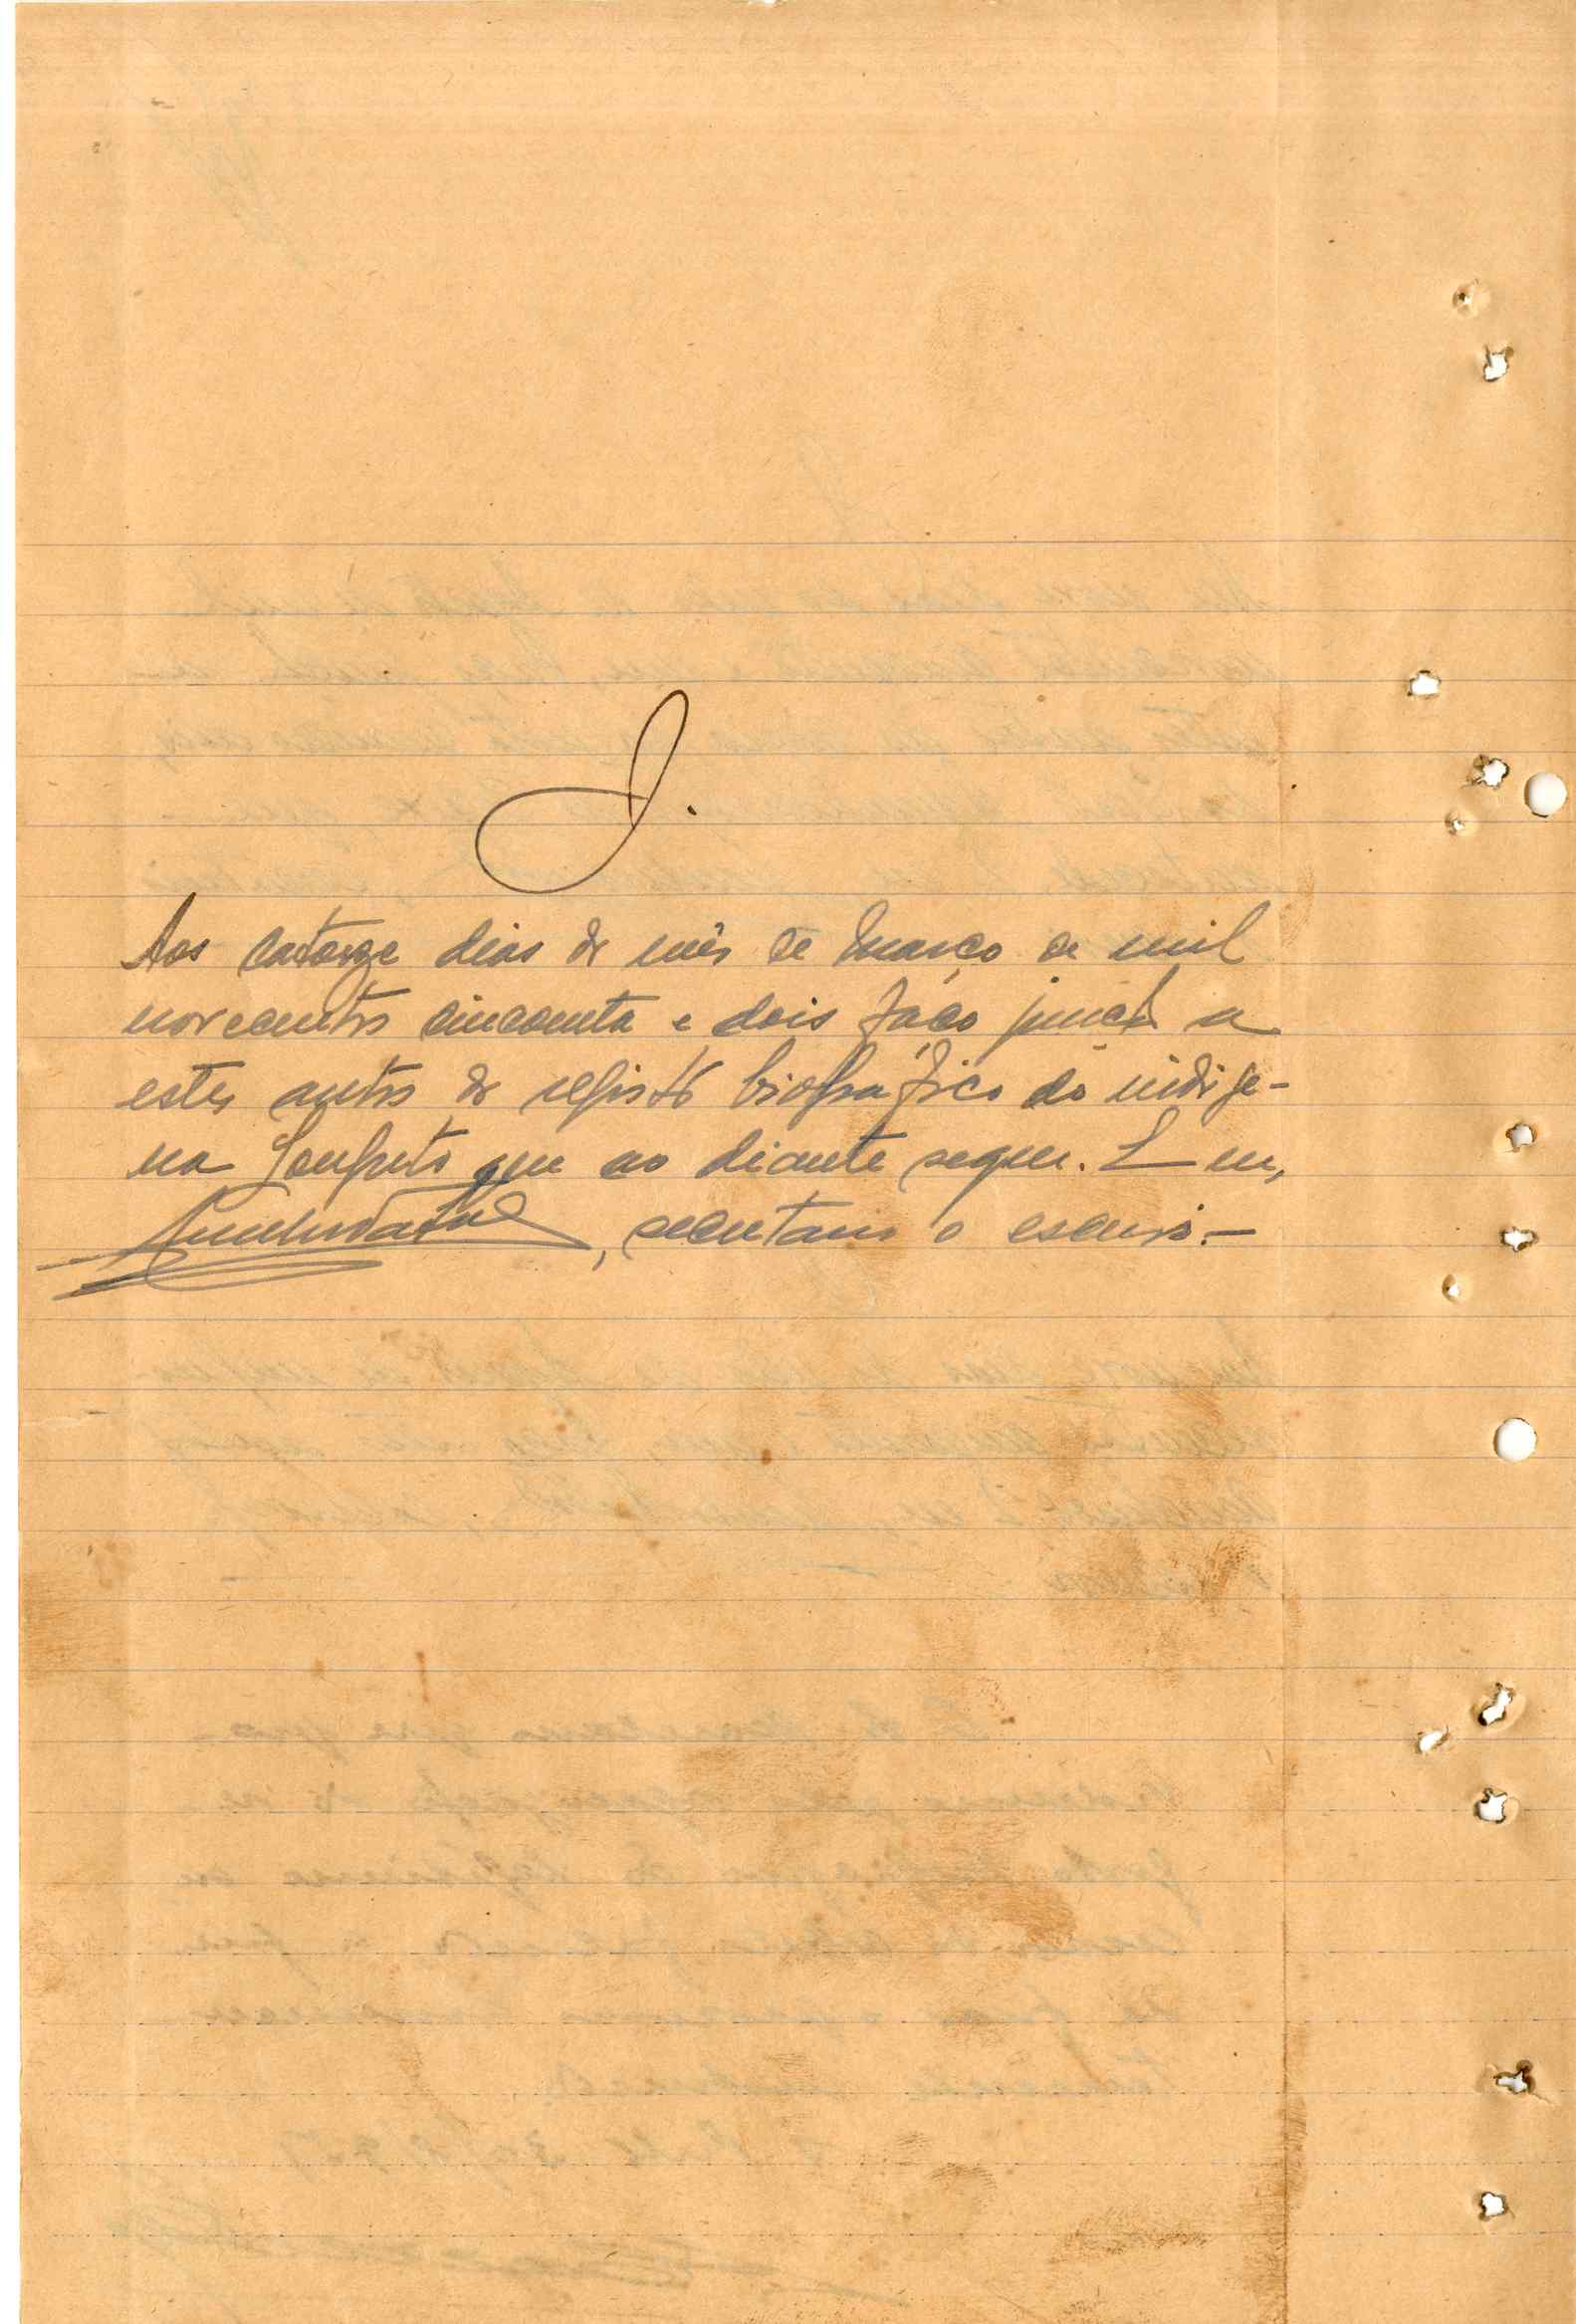 J.
Aos catorze dias do mês de Março de mil
novecentos cincoenta e dois faço junct a
estes autos do registo biográfico do indige-
na que ao diante segue. E eu,
, secretario o escrevi.-